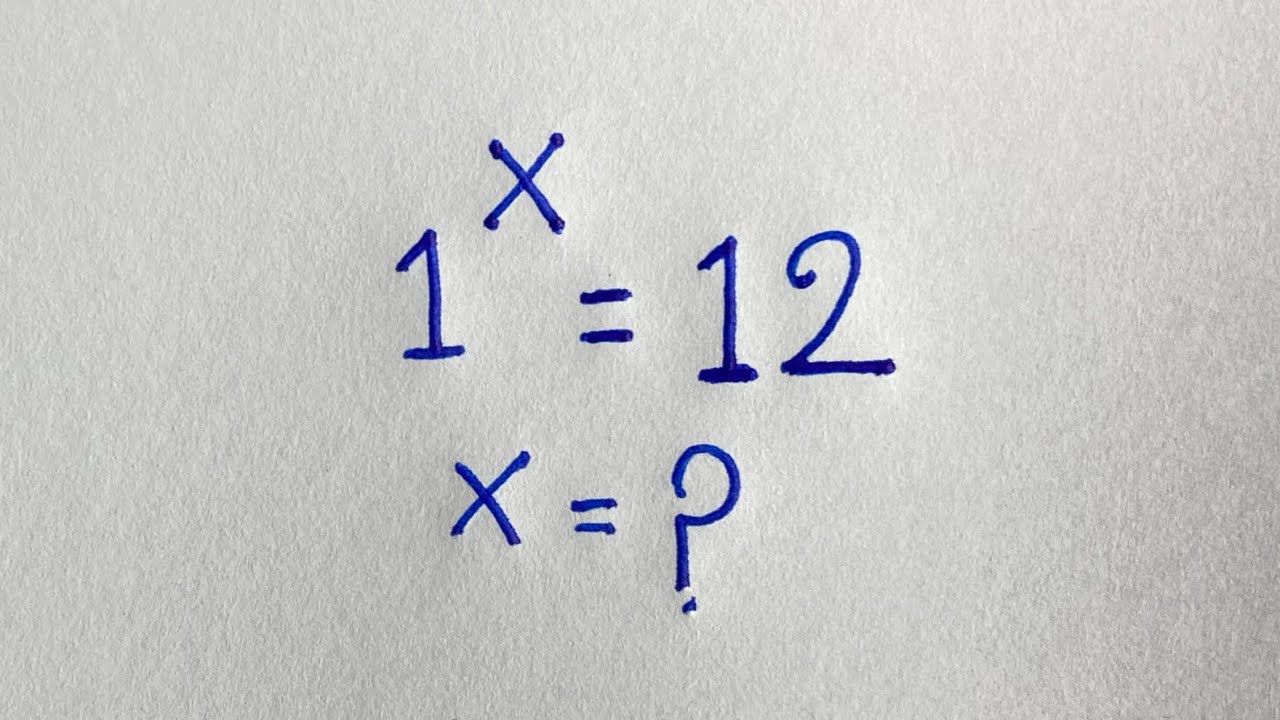 1ˣ = 12
x = ?